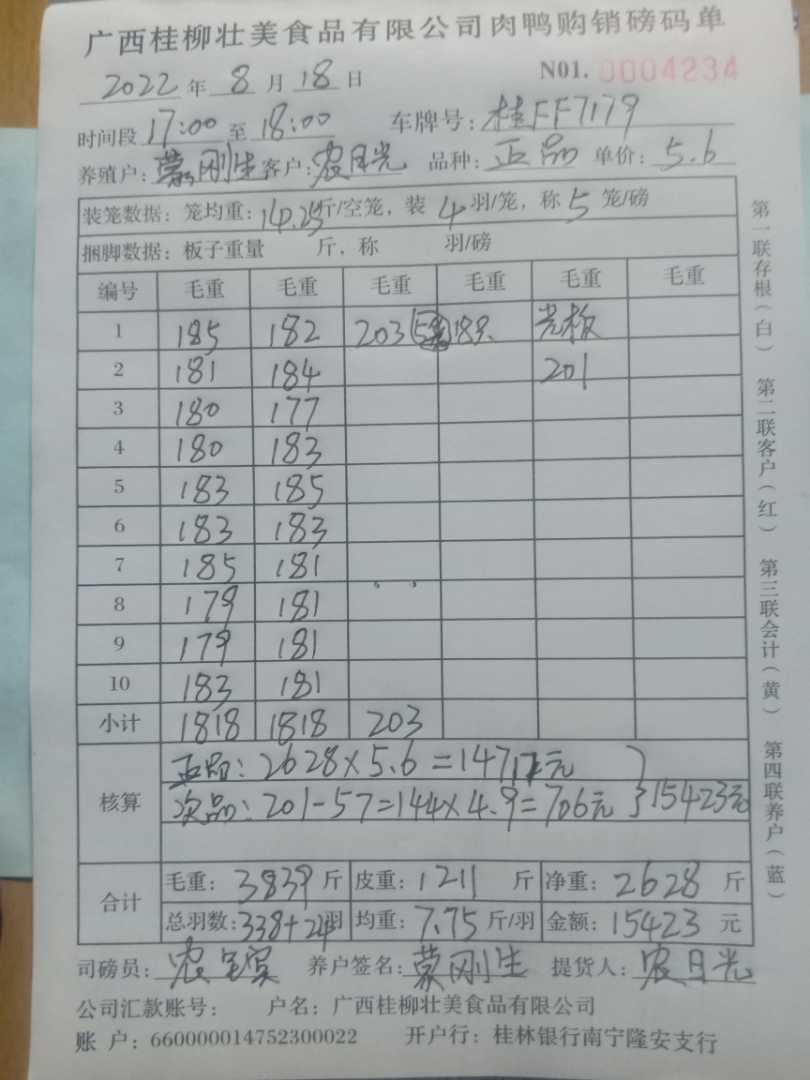 广西桂柳壮美食品有限公司肉鸭购销磅码单
2022年8月18日 N01. 0004234
时间段17:00至18:00 车牌号:桂FF7179
养殖户:蒙刚生客户:农月光 品种:正品 单价:5.6
装笼数据:笼均重:14.25斤/空笼,装4羽/笼,称5笼/磅
捆脚数据:板子重量 斤,称 羽/磅
编号 毛重 毛重 毛重 毛重 毛重 毛重
1 185 182 203 189. 光板
2 181 184 201
3 180 177
4 180 183
5 183 185
6 183 183
7 185 181
8 179 181
9 179 181
10 183 181
小计 1818 1818 203
核算
正品:2628×5.6=14717元
次品:201-57=144×4.9=706元 }15423元
合计
毛重:3839斤 皮重:1211斤 净重:2628斤
总羽数:338+24羽 均重:7.75斤/羽 金额:15423元
司磅员:农 养户签名:蒙刚生 提货人:农月光
公司汇款账号: 户名:广西桂柳壮美食品有限公司
账 户:660000014752300022 开户行:桂林银行南宁隆安支行
第一联存根(白) 第二联客户(红) 第三联会计(黄) 第四联养户(蓝)